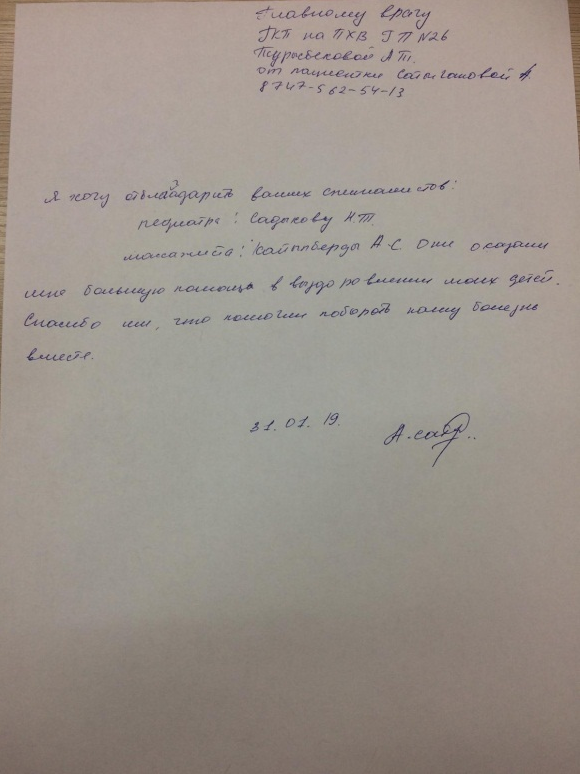 Главному врачу
ГКП на ПХВ ГП №26
Турысбековой А.Т.
от пациентки Сатыгановой А.
8747-562-54-13
Я хочу отблагадарить ваших специалистов:
педиатра: Садыкову Н.Т.
массажиста: А.С. Они оказали
мне большую помощь в выздоровлении моих детей.
Спасибо им, что помогли побороть нашу болезнь
вместе.
31.01.19.